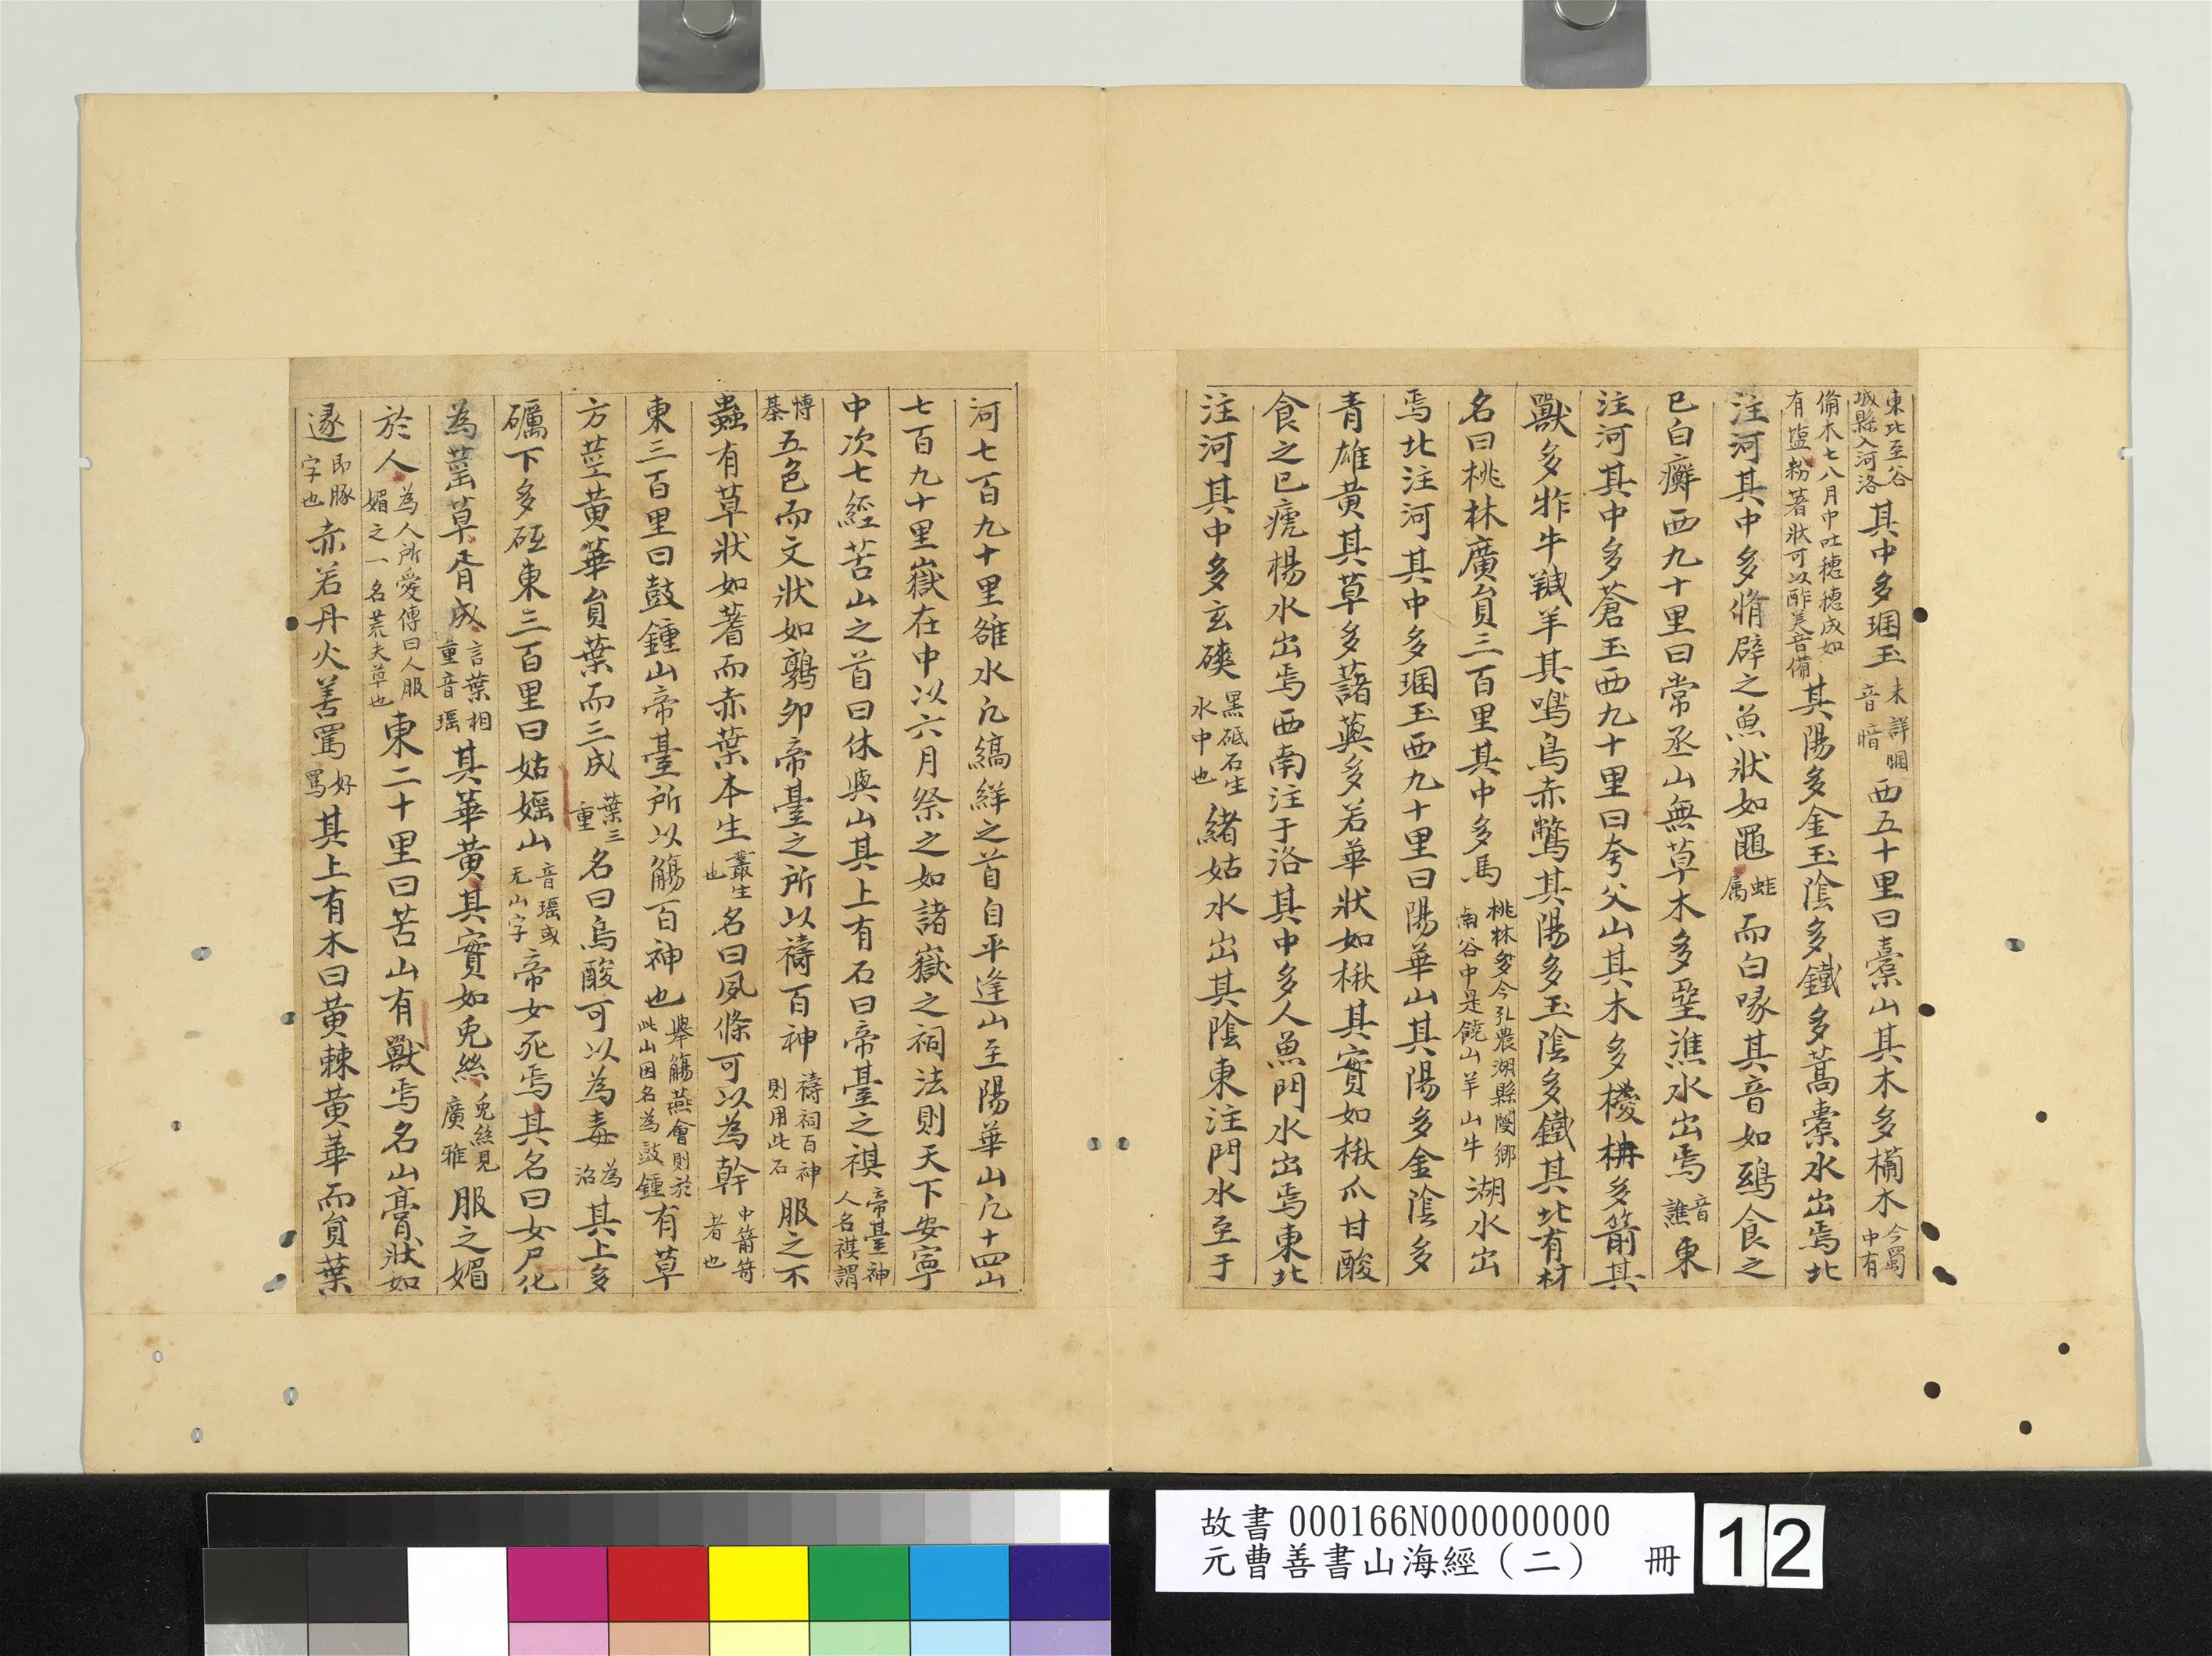 東北至谷城縣入河洛其中多𤨒玉未詳𤨒音暗西五十里曰橐山其木多樠木今蜀中有
樠木七八月中吐穗穗成如有塩粉著狀可以酢羙音備其陽多金玉陰多鐵多蒿橐水出焉北
注河其中多脩辟之魚狀如黽蛙属而白喙其音如鵄食之
已白癬西九十里曰常烝山無草木多堊潐水出焉音譙東
注河其中多蒼玉西九十里曰夸父山其木多椶枏多箭其
獸多㸲牛羬羊其鳴鳥赤鷩其陽多玉陰多鐵其北有材
名曰桃林廣員三百里其中多馬桃林多今弘農湖縣閿鄉南谷中是饒山羊山牛湖水出
焉北注河其中多𤨒玉西九十里曰陽華山其陽多金陰多
青雄黄其草多藷藇多若華狀如楸其實如楸爪甘酸
食之已瘧楊水出焉西南注于洛其中多人魚門水出焉東北
注河其中多玄磢黑砥石生水中也緒姑水出其陰東注門水至于
河七百九十里雒水凡縞絴之首自平逢山至陽華山凡十四山
七百九十里嶽在中以六月祭之如諸嶽之祠法則天下安寧
中次七經苦山之首曰休輿山其上有石曰帝臺之禖帝臺神人名禖謂
博棊五色而文狀如鶉卵帝臺之所以禱百神禱祠百神則用此石服之不
蠱有草狀如蓍而赤葉本生叢生也名曰夙條可以為幹中箭笴者也
東三百里曰鼓鍾山帝臺所以觴百神也舉觴燕會則於此山因名為鼓鍾有草
方莖黄華員葉而三成葉三重名曰烏酸可以為毒為治其上多
礪下多砥東三百里曰姑媱山音瑶或无山字帝女死焉其名曰女尸化
為䔄草胥成言葉相重音瑶其華黄其實如兎絲兎絲見廣雅服之媚
於人為人所愛傳曰人服媚之一名荒夫草也東二十里曰苦山有獸焉名山膏狀如
豚即豚字也赤若丹火善罵好罵其上有木曰黄棘黄華而員葉
故書 000166N000000000
元曹善書山海經（二） 冊 12